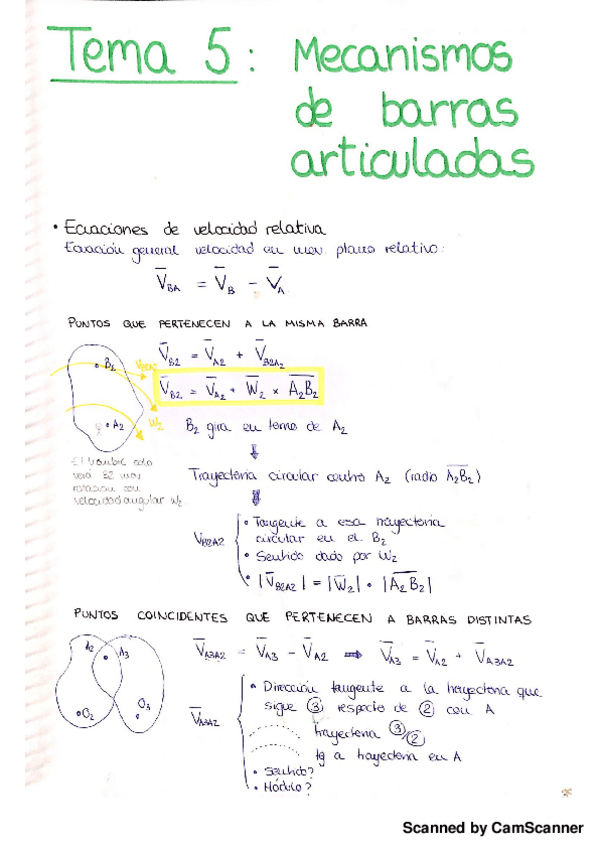 Tema 5: Mecanismos
de barras
articuladas
• Ecuaciones de velocidad relativa
Ecuación general velocidad en mov. plano relativo:
V̅BA = V̅B - V̅A
PUNTOS QUE PERTENECEN A LA MISMA BARRA
V̅B2 = V̅A2 + V̅B2A2
B2
VB2A2
V̅B2 = V̅A2 + W̅2 × A2B2
W2
A2
B2 gira en torno de A2
⇓
El hombre solo
verá B2 mov
rotación con
velocidad angular W2
Trayectoria circular centro A2 (radio A2B2)
⇓
VB2A2
• Tangente a esa trayectoria
circular en el B2
• Sentido dado por W2
• |V̅B2A2| = |W̅2| • |A2B2|
PUNTOS COINCIDENTES QUE PERTENECEN A BARRAS DISTINTAS
A2
A3
O2
O3
V̅A3A2 = V̅A3 - V̅A2 ⇒ V̅A3 = V̅A2 + V̅A3A2
V̅A3A2
• Dirección tangente a la trayectoria que
sigue ③ respecto de ② con A
trayectoria ③/②
tg a trayectoria en A
• Sentido?
• Módulo?
Scanned by CamScanner